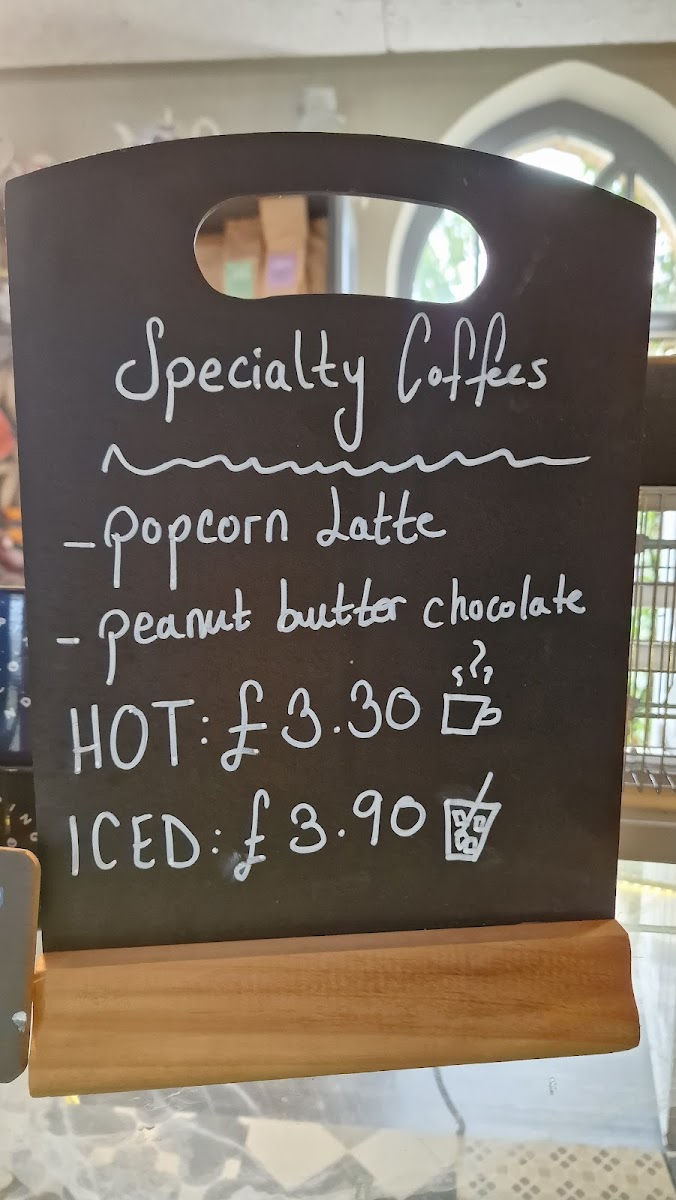 Specialty Coffees
- popcorn Latte
- peanut butter chocolate
HOT: £3.30
ICED: £3.90